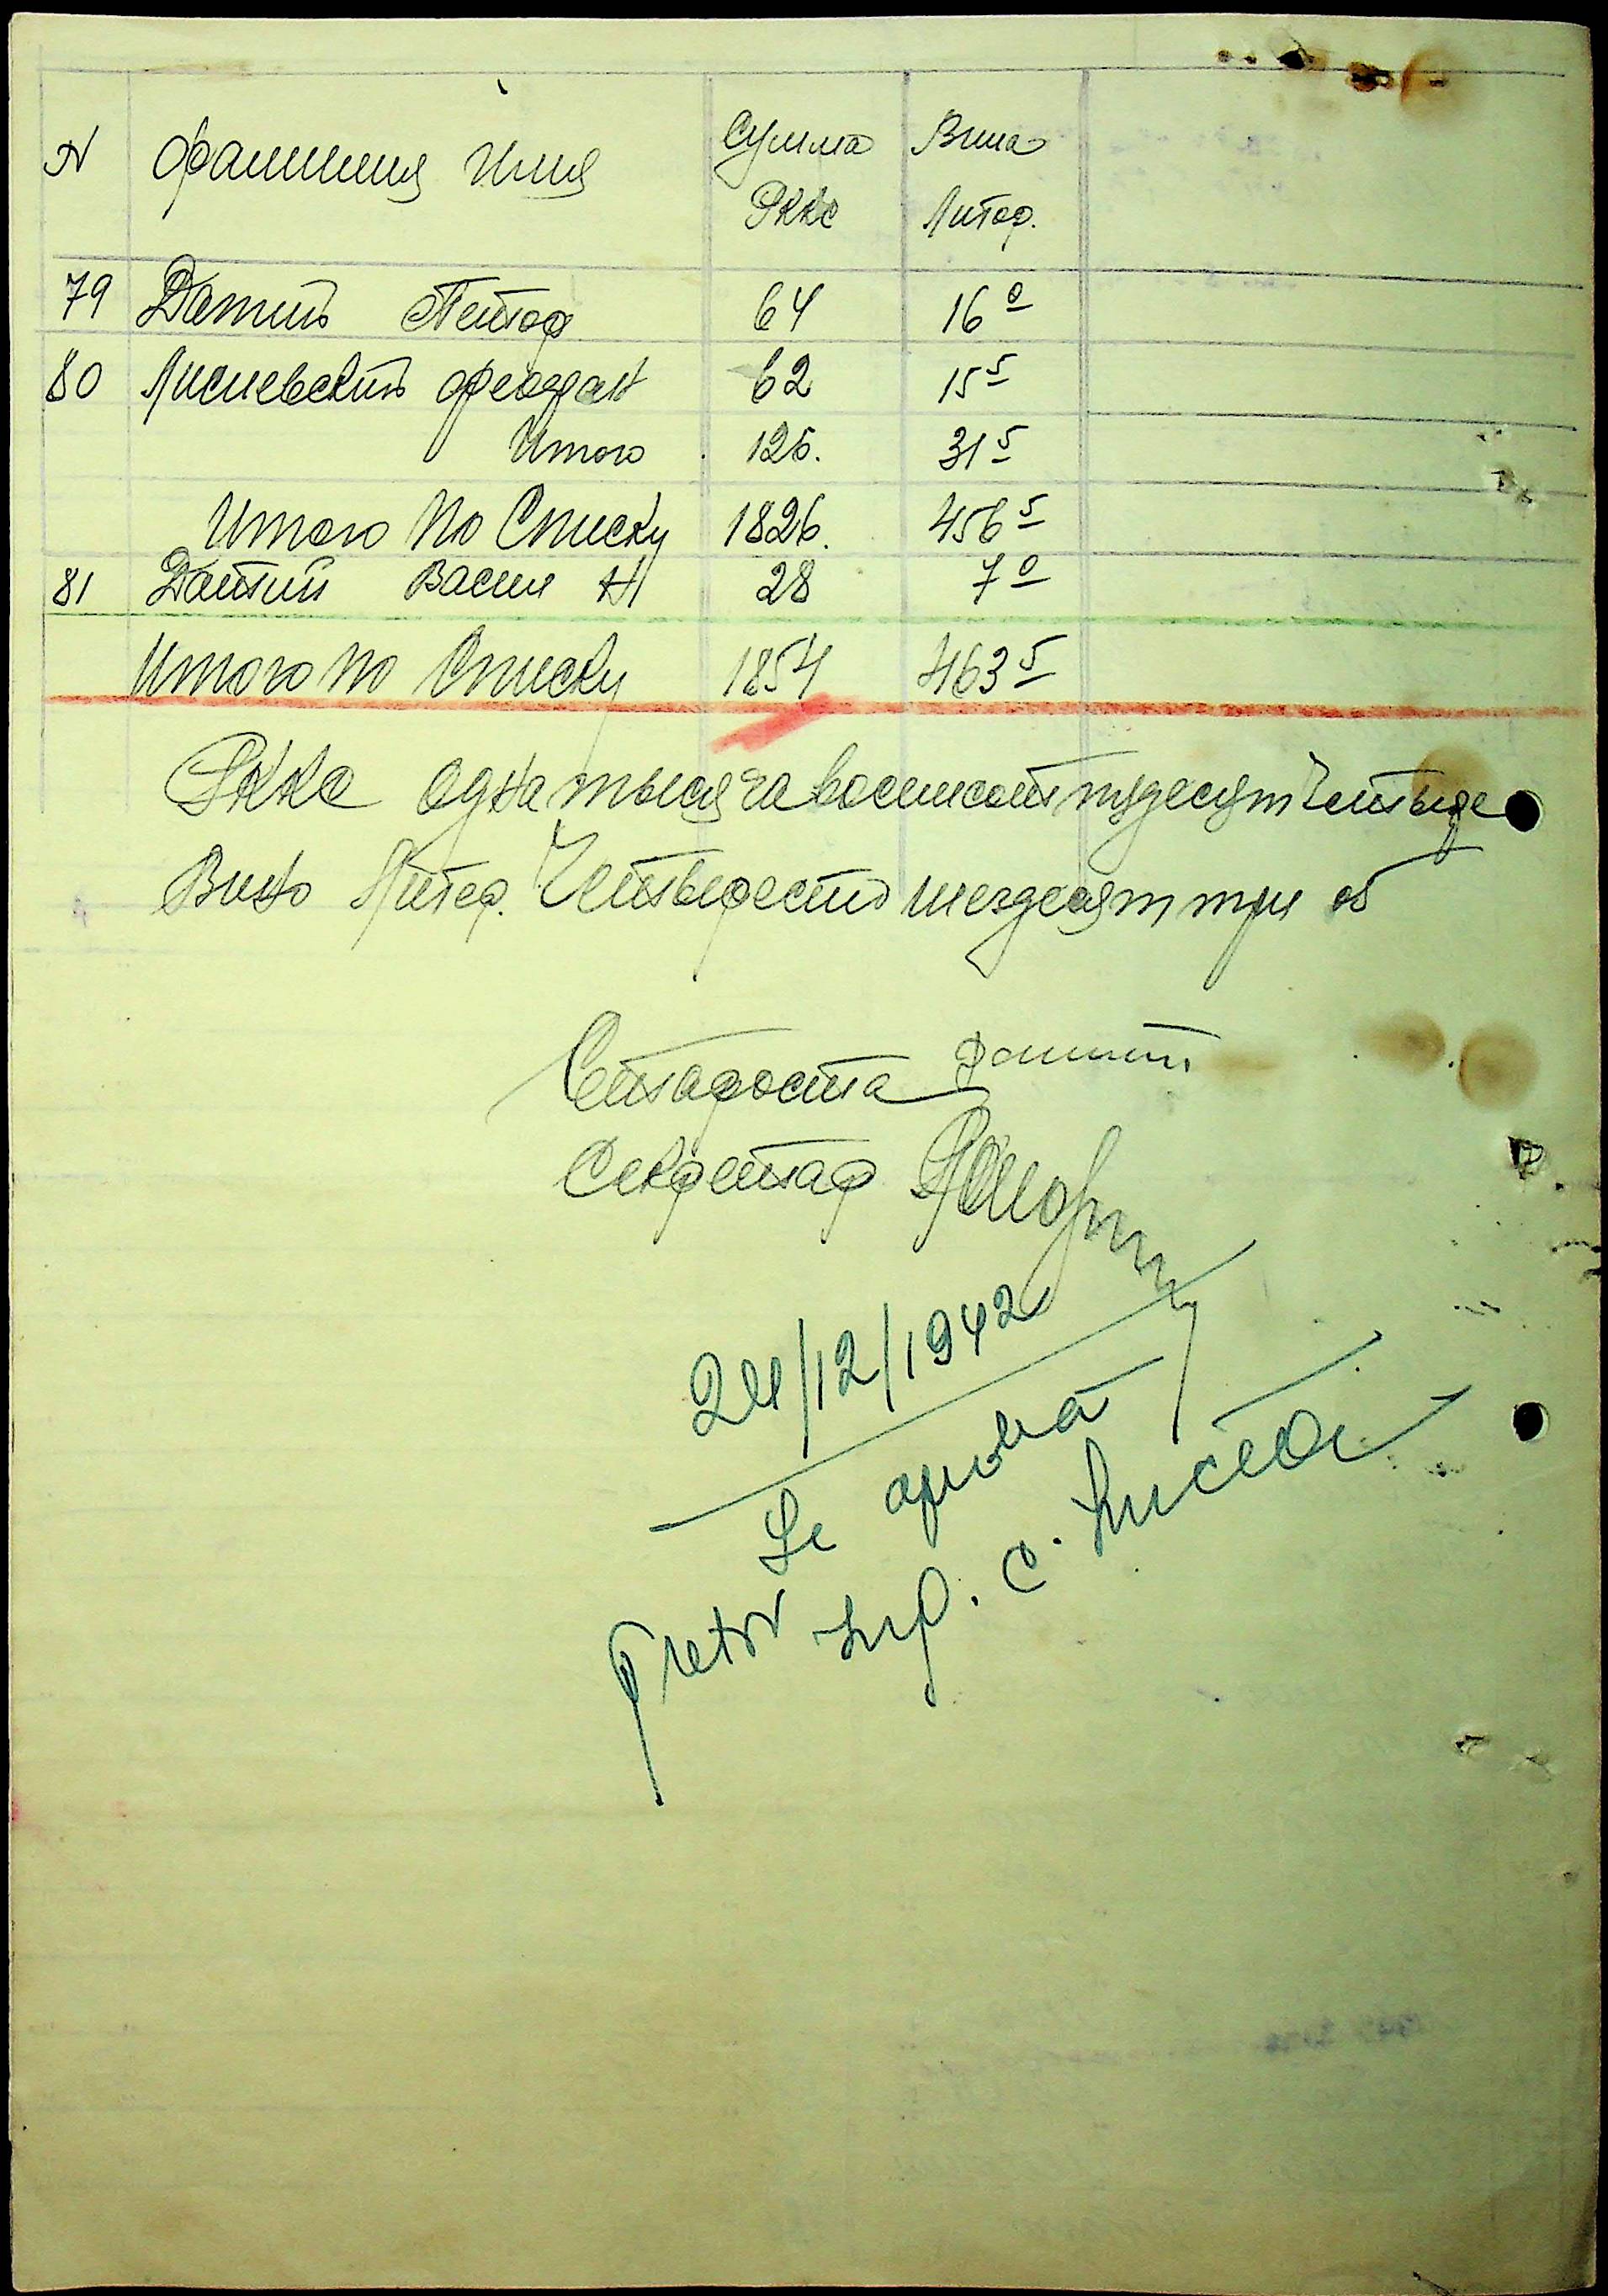 N Фамилия Имя Сумма Вина
Ркке Литер.
79 Датий Петар 64 16 0
80 Лисиевский Феодан 62 15 5
Итого 126. 31 5
Итого по Списку 1826. 456 5
81 Датий Васил Н 28 7 0
Итого по Списку 1854 463 5
Ркке одна тысяча восемсот пядесят Четыре
Вино Литер. Четыресто шездесят три 05
Староста
Секретар
24/12/1942
Se aprobă
Pretor